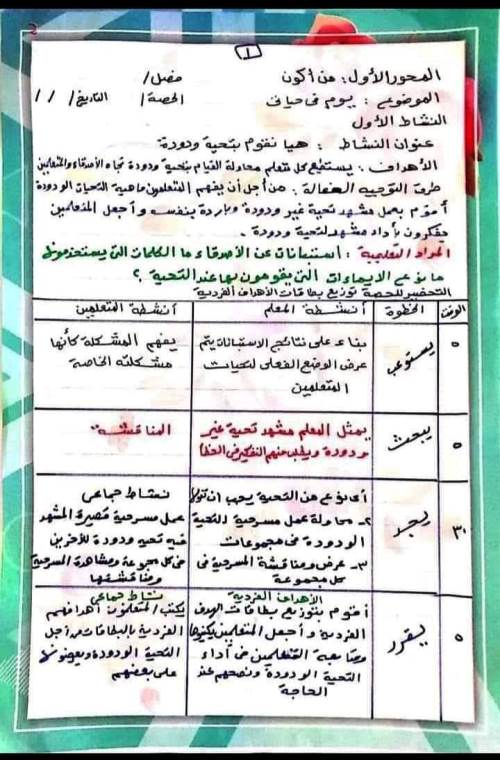 ١
المحور الأول: من أكون
فصل/
الموضوع: يوم فى حياتى
الحصة/
التاريخ/ / /
النشاط الأول
عنوان النشاط : هيا نقوم بتحية ودودة
الأهداف: يستطيع كل متعلم محاولة القيام بتحية ودودة تجاه الأصدقاء والمتعلمين
طرق التوجيه الفعالة: من أجل أن يفهم المتعلمين ماهية التحيات الودودة
أقوم بعمل مشهد تحية غير ودودة وباردة بنفسه وأجعل المتعلمين
يفكرون بأداء مشهد لتحية ودودة.
المواد التعليمية: استبيانات عن الأصدقاء ما الكلمات التى يستخدمونها
ما نوع الإيماءات التى يقومون بها عند التحية ؟
التحضير للحصة توزيع بطاقات الأهداف الفردية
الوقت
الخطوة
أنشطة المعلم
أنشطة المتعلمين
٥
يستوعب
بناء على نتائج الاستبيانات يتم
عرض الوضع الفعلى لتحيات
المتعلمين
يفهم المشكلة كأنها
مشكلته الخاصة
٥
يبحث
يمثل المعلم مشهد تحية غير
ودودة ويطلب منهم التفكير فى الخطأ
المناقشة
٣٠
يجد
أى نوع من التحية يجب ان تؤدى
٢- محاولة عمل مسرحية للتحية
الودودة فى مجموعات
٣- عرض ومناقشة المسرحية فى
كل مجموعة
نشاط جماعى
عمل مسرحية قصيرة المشهد
فيه تحية ودودة للآخرين
فى كل مجموعة ومشاهدة المسرحية
ومناقشتها
٥
يقرر
الأهداف الفردية
أقوم بتوزيع بطاقات الهدف
الفردية وأجعل المتعلمين يكتبوها
ومتابعة المتعلمين فى أداء
التحية الودودة ونصحهم عند
الحاجة
نشاط جماعى
يكتب المتعلمون أهدافهم
الفردية بالبطاقات من أجل
التحية الودودة ويعرضونها
على بعضهم